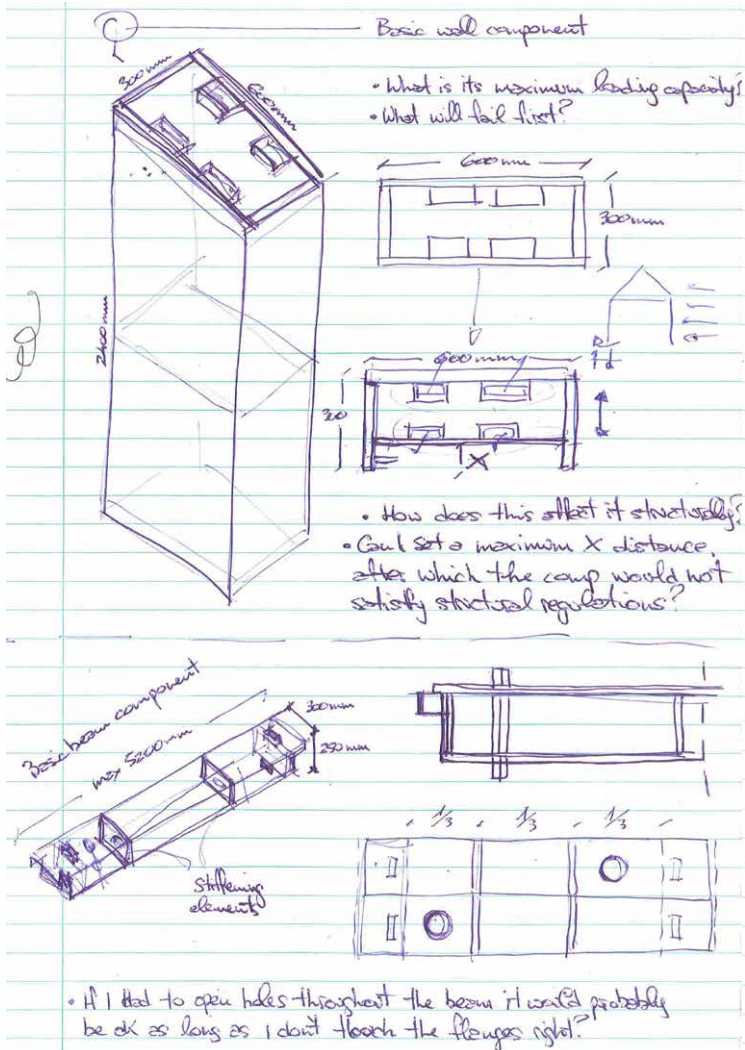 C
Basic wall component
300mm
600mm
• What is its maximum loading capacity?
• What will fail first?
600mm
300mm
2400mm
600mm
300
X
• How does this affect it structurally?
• Can I set a maximum X distance,
after which the comp would not
satisfy structural regulations?
Basic beam component
max 5200mm
300mm
250mm
1/3 1/3 1/3
Stiffening
elements
• If I had to open holes throughout the beam it would probably
be ok as long as I don't touch the flanges right?